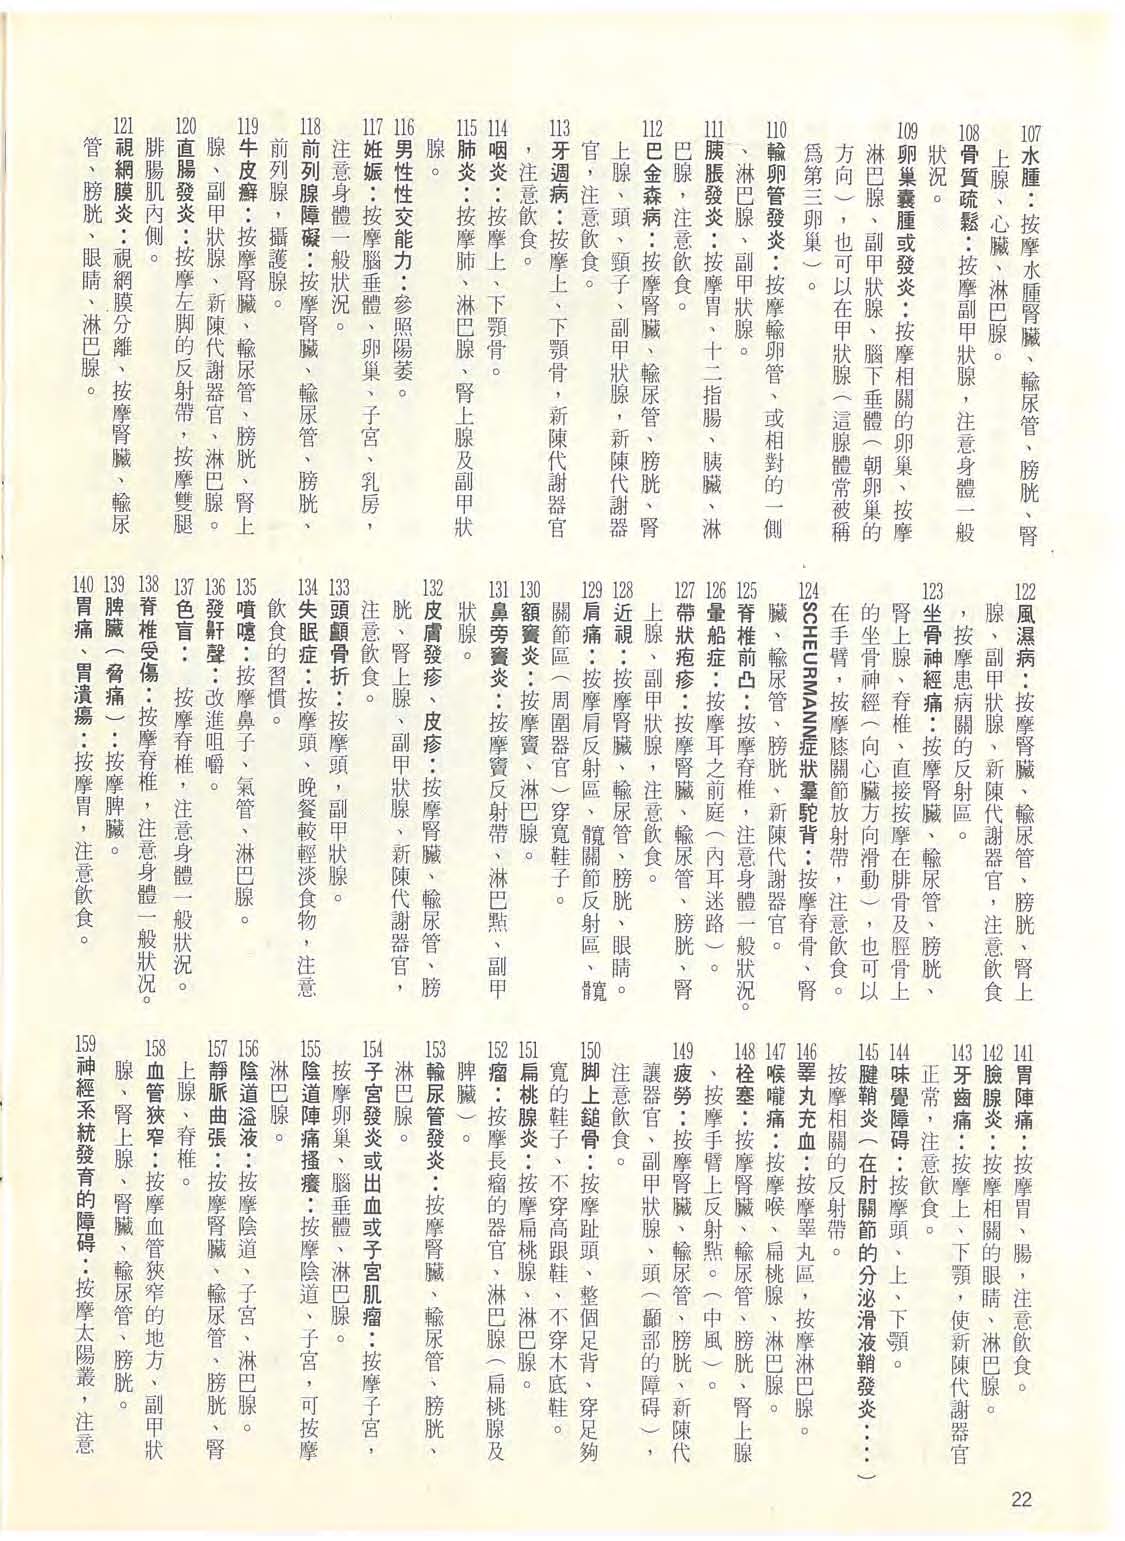 107水腫：按摩水腫腎臟、輸尿管、膀胱、腎
上腺、心臟、淋巴腺。
108骨質疏鬆：按摩副甲狀腺，注意身體一般
狀況。
109卵巢囊腫或發炎：按摩相關的卵巢、按摩
淋巴腺、副甲狀腺、腦下垂體（朝卵巢的
方向），也可以在甲狀腺（這腺體常被稱
爲第三卵巢）。
110輸卵管發炎：按摩輸卵管、或相對的一側
、淋巴腺、副甲狀腺。
111胰脹發炎：按摩胃、十二指腸、胰臟、淋
巴腺，注意飲食。
112巴金森病：按摩腎臟、輸尿管、膀胱、腎
上腺、頭、頸子、副甲狀腺，新陳代謝器
官，注意飲食。
113牙週病：按摩上、下顎骨，新陳代謝器官
，注意飲食。
114咽炎：按摩上、下顎骨。
115肺炎：按摩肺、淋巴腺、腎上腺及副甲狀
腺。
116男性性交能力：參照陽萎。
117姙娠：按摩腦垂體、卵巢、子宮、乳房，
注意身體一般狀況。
118前列腺障礙：按摩腎臟、輸尿管、膀胱、
前列腺，攝護腺。
119牛皮癬：按摩腎臟、輸尿管、膀胱、腎上
腺、副甲狀腺、新陳代謝器官、淋巴腺。
120直腸發炎：按摩左脚的反射帶，按摩雙腿
腓腸肌內側。
121視網膜炎：視網膜分離、按摩腎臟、輸尿
管、膀胱、眼睛、淋巴腺。
122風濕病：按摩腎臟、輸尿管、膀胱、腎上
腺、副甲狀腺、新陳代謝器官，注意飲食
，按摩患病關的反射區。
123坐骨神經痛：按摩腎臟、輸尿管、膀胱、
腎上腺、脊椎、直接按摩在腓骨及脛骨上
的坐骨神經（向心臟方向滑動），也可以
在手臂，按摩膝關節放射帶，注意飲食。
124SCHEURMANN症狀羣駝背：按摩脊骨、腎
臟、輸尿管、膀胱、新陳代謝器官。
125脊椎前凸：按摩脊椎，注意身體一般狀況。
126暈船症：按摩耳之前庭（內耳迷路）。
127帶狀疱疹：按摩腎臟、輸尿管、膀胱、腎
上腺、副甲狀腺，注意飲食。
128近視：按摩腎臟、輸尿管、膀胱、眼睛。
129肩痛：按摩肩反射區、髖關節反射區、髖
關節區（周圍器官）穿寬鞋子。
130額竇炎：按摩竇、淋巴腺。
131鼻旁竇炎：按摩竇反射帶、淋巴點、副甲
狀腺。
132皮膚發疹、皮疹：按摩腎臟、輸尿管、膀
胱、腎上腺、副甲狀腺、新陳代謝器官，
注意飲食。
133頭顱骨折：按摩頭，副甲狀腺。
134失眠症：按摩頭、晚餐較輕淡食物，注意
飲食的習慣。
135噴嚏：按摩鼻子、氣管、淋巴腺。
136發鼾聲：改進咀嚼。
137色盲：　按摩脊椎，注意身體一般狀況。
138脊椎受傷：按摩脊椎，注意身體一般狀况。
139脾臟（脅痛）：按摩脾臟。
140胃痛、胃潰瘍：按摩胃，注意飲食。
141胃陣痛：按摩胃、腸，注意飲食。
142臉腺炎：按摩相關的眼睛、淋巴腺。
143牙齒痛：按摩上、下顎，使新陳代謝器官
正常，注意飲食。
144味覺障碍：按摩頭、上、下顎。
145腱鞘炎（在肘關節的分泌滑液鞘發炎‥‥）
按摩相關的反射帶。
146睪丸充血：按摩睪丸區，按摩淋巴腺。
147喉嚨痛：按摩喉、扁桃腺、淋巴腺。
148栓塞：按摩腎臟、輸尿管、膀胱、腎上腺
、按摩手臂上反射點。（中風）。
149疲勞：按摩腎臟、輸尿管、膀胱、新陳代
讓器官、副甲狀腺、頭（顳部的障碍），
注意飲食。
150脚上鎚骨：按摩趾頭、整個足背、穿足夠
寬的鞋子、不穿高跟鞋、不穿木底鞋。
151扁桃腺炎：按摩扁桃腺、淋巴腺。
152瘤：按摩長瘤的器官、淋巴腺（扁桃腺及
脾臟）。
153輸尿管發炎：按摩腎臟、輸尿管、膀胱、
淋巴腺。
154子宮發炎或出血或子宮肌瘤：按摩子宮，
按摩卵巢、腦垂體、淋巴腺。
155陰道陣痛搔癢：按摩陰道、子宮，可按摩
淋巴腺。
156陰道溢液：按摩陰道、子宮、淋巴腺。
157靜脈曲張：按摩腎臟、輸尿管、膀胱、腎
上腺、脊椎。
158血管狹窄：按摩血管狹窄的地方、副甲狀
腺、腎上腺、腎臟、輸尿管、膀胱。
159神經系統發育的障碍：按摩太陽叢，注意
22